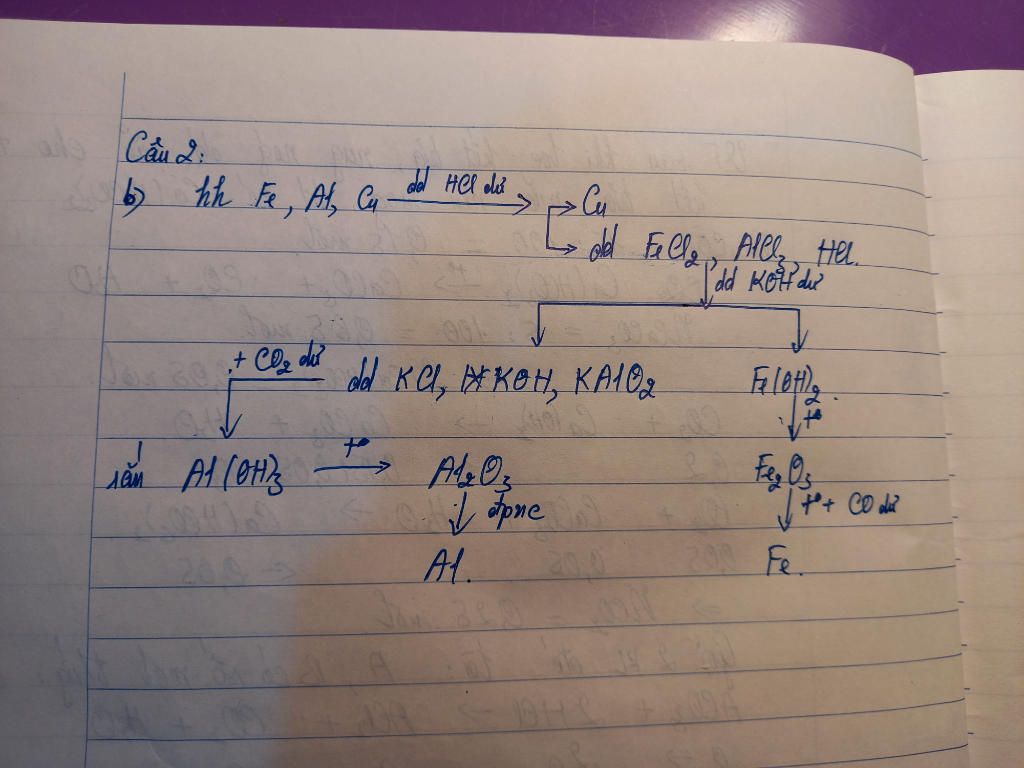 Câu 2:
b) hh Fe, Al, Cu dd HCl dư Cu
dd FeCl2, AlCl3, HCl.
dd KOH dư
+ CO2 dư
dd KCl, KOH, KAlO2 Fe(OH)2.
t°
rắn Al(OH)3 t° Al2O3 Fe2O3
đpnc t° + CO dư
Al. Fe.